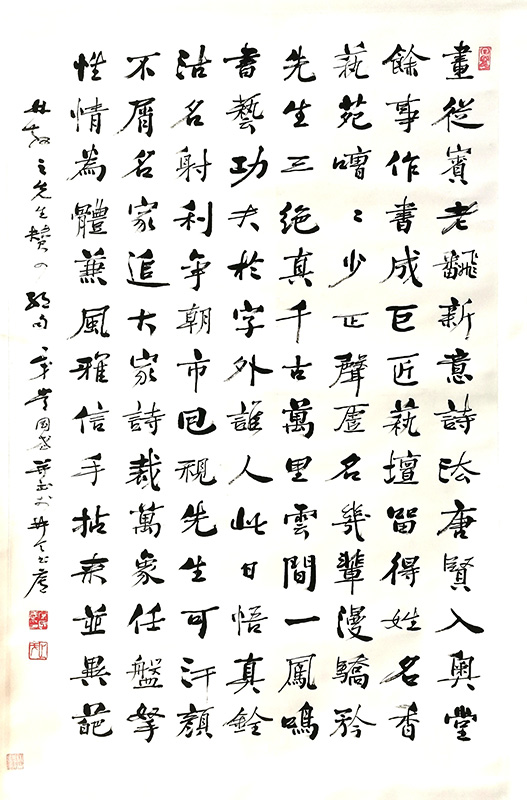 畫從賓老飜新意詩法唐賢入奧堂
餘事作書成巨匠萟壇留得姓名香
萟苑嘈〻少正聲虛名幾輩漫驕矜
先生三絕真千古萬里雲間一鳳鳴
書藝功夫於字外誰人此日悟真銓
沽名射利爭朝市回視先生可汗顏
不屑名家追大家詩裁萬象任盤拏
性情為體兼風雅信手拈來並異葩
林散之先生贊四絕句常國武